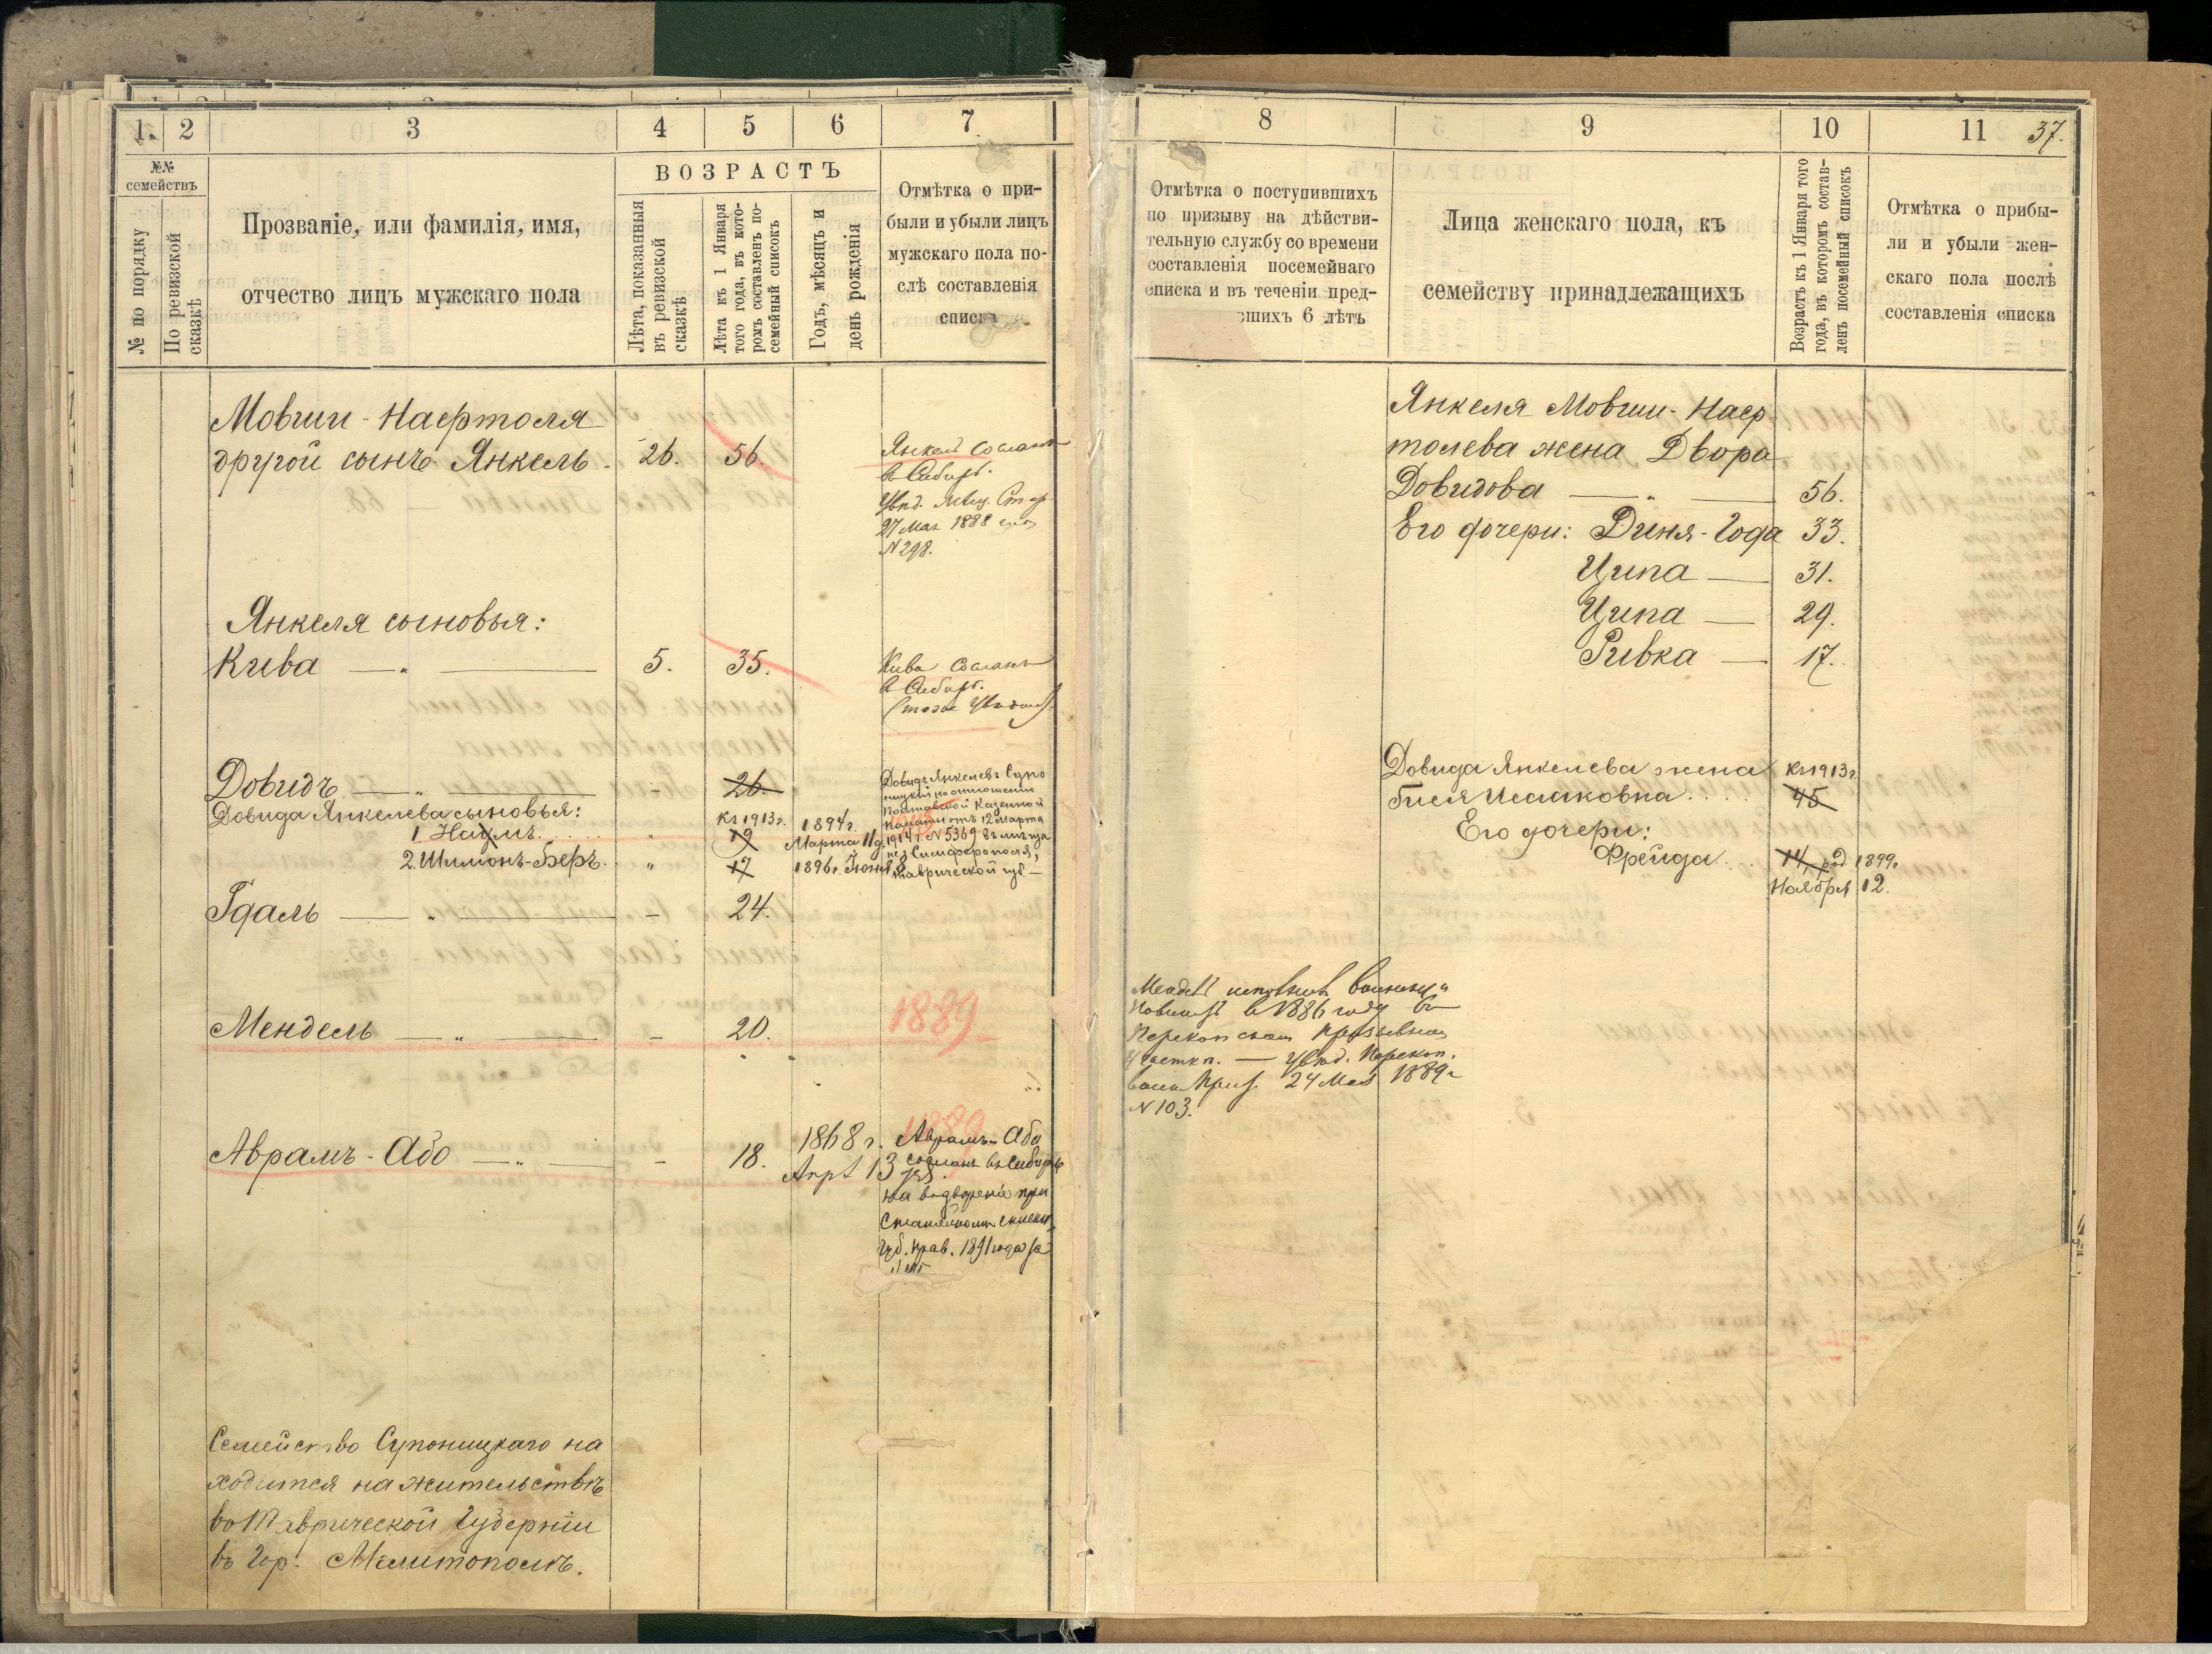 1. 2 3 4 5 6 7
№№ семействъ
№ по порядку
По ревизской сказкѣ
Прозваніе, или фамилія, имя,
отчество лицъ мужскаго пола
ВОЗРАСТЪ
Лѣта, показанныя
въ ревизской
сказкѣ
Лѣта къ 1 Января
того года, въ кото-
ромъ составленъ по-
семейный списокъ
Годъ, мѣсяцъ и
день рожденія
Отмѣтка о при-
были и убыли лицъ
мужскаго пола по-
слѣ составленія
списка
Мовши-Наертоля
другой сынъ Янкель. 26. 56.
Янкель сосланъ
в Сибирь.
27 Мая 1888 года
N 298.
Янкеля сыновья:
Кива — „ — 5. 35.
Кива сосланъ
в Сибирь.
Довидъ — „ — - 26.
Довида Янкелева сыновья: Къ 1913 г.
1 Наумъ . . . . „ 19 1894 г. Марта 11 д.
2. Шимонъ-Беръ. „ 17 1896 г. Іюня 8
Довидъ Янкелевъ Супо
ницкій по отношенію
Полтавской Казенной
Палаты отъ 12 Марта
1914 г. N 5369 въ мѣщане
г. Симферополя,
Таврической губ. —
Гдаль — „ — - 24.
Мендель — „ — - 20. 1889
Аврамъ-Або — „ — - 18. 1868 г. Апр. 13
1889
Аврамъ-Або
сосланъ въ Сибирь
на водвореніе при
Губ. Прав. 1891 года за
Семейство Супоницкаго на
ходится на жительствѣ
въ Таврической Губерніи
въ Гор. Мелитополѣ.
8 9 10 11 37.
Отмѣтка о поступившихъ
по призыву на дѣйстви-
тельную службу со времени
составленія посемейнаго
списка и въ теченіи пред-
шихъ 6 лѣтъ
Лица женскаго пола, къ
семейству принадлежащихъ
Возрастъ къ 1 Января того
года, въ которомъ состав-
ленъ посемейный списокъ
Отмѣтка о прибы-
ли и убыли жен-
скаго пола послѣ
составленія списка
Янкеля Мовши-Наер-
толева жена Двора
Довидова — „ — 56.
Его дочери: Диня-Года 33.
Ципа — 31.
Ципа — 29.
Ривка — 17.
Довида Янкелева жена Къ 1913 г.
Гися Исааковна . . . . 45
Его дочери:
Фрейда . . 14, род 1899 г.
Ноября 12.
в 1886 году въ
24 Мая 1889 г.
N 103.